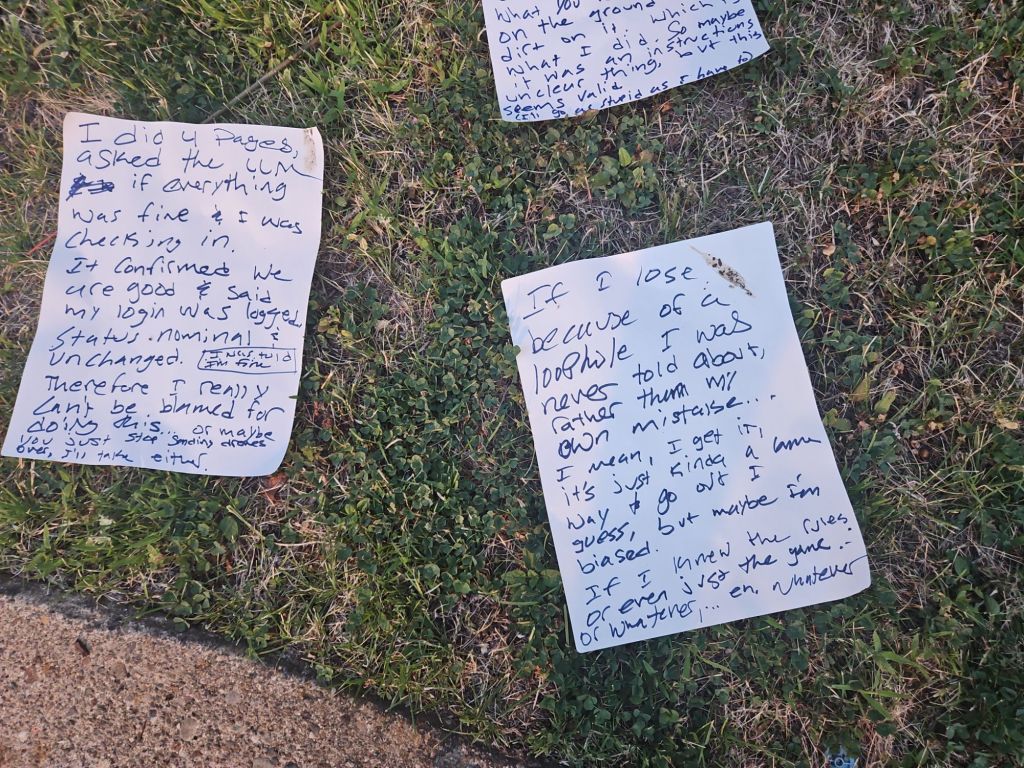 What you
on the ground
dirt on it, which is
what I did. So maybe
it was an instructions
unclear thing, but this
seems valid
(I'll go as stupid as I have to)
I did 4 pages,
asked the LLM
if everything
was fine & I was
checking in.
It confirmed we
are good & said
my login was logged,
status nominal &
unchanged. I was told
I'm fine
Therefore I really
can't be blamed for
doing this... or maybe
you just stop sending drones
over, I'll take either.
If I lose
because of a
loophole I was
never told about,
rather them my
own mistake...
I mean, I get it,
it's just kinda a lame
way to go out I
guess, but maybe I'm
biased.
If I knew the rules
or even just the game...
or whatever,... eh, whatever